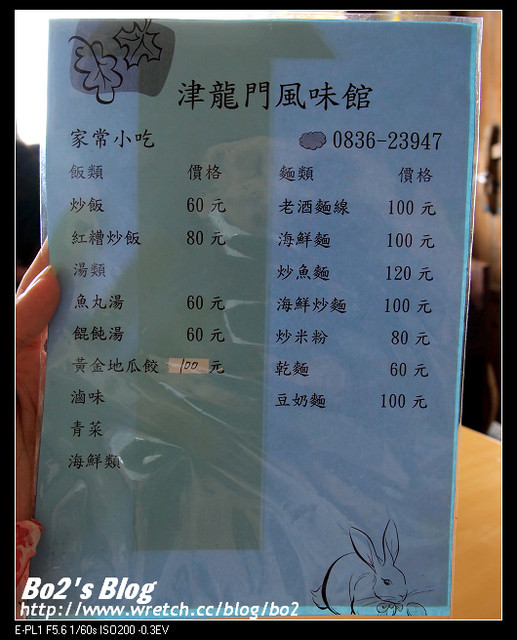 津龍門風味館
家常小吃
0836-23947
飯類 價格
炒飯 60 元
紅糟炒飯 80 元
湯類
魚丸湯 60 元
餛飩湯 60 元
黃金地瓜餃 100 元
滷味
青菜
海鮮類
麵類 價格
老酒麵線 100 元
海鮮麵 100 元
炒魚麵 120 元
海鮮炒麵 100 元
炒米粉 80 元
乾麵 60 元
豆奶麵 100 元
Bo2's Blog
http://www.wretch.cc/blog/bo2
E-PL1 F5.6 1/60s ISO200 -0.3EV